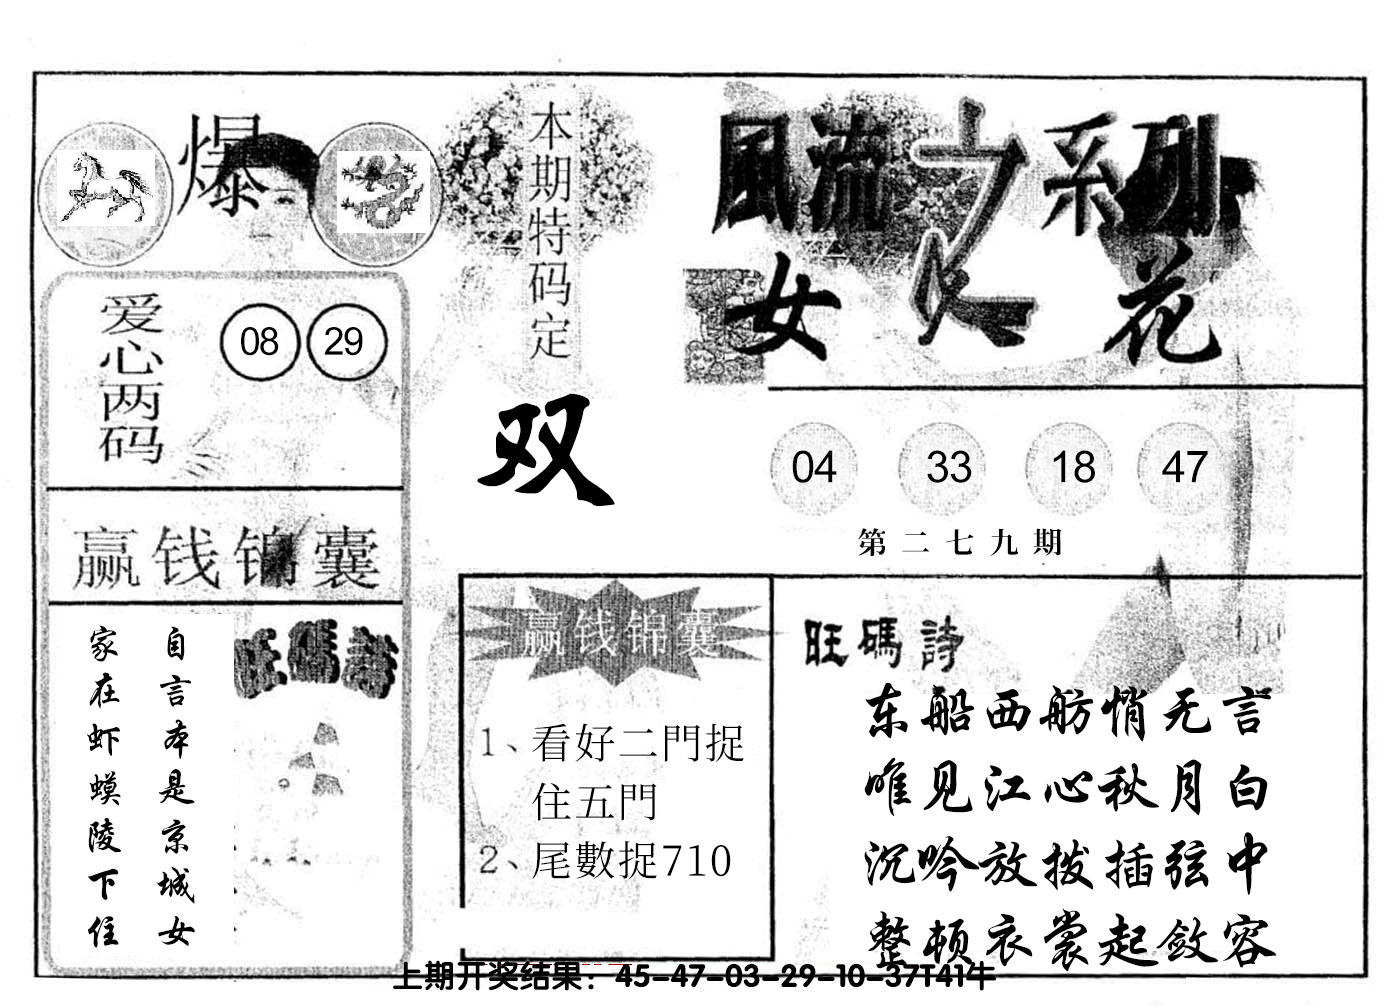 爆
本期特码定
双
風流之系列
女人花
爱心两码
08 29
04 33 18 47
第二七九期
赢钱锦囊
旺碼詩
自言本是京城女
家在虾蟆陵下住
赢钱锦囊
1、看好二門捉
住五門
2、尾數捉710
旺碼詩
东船西舫悄无言
唯见江心秋月白
沉吟放拨插弦中
整顿衣裳起敛容
上期开奖结果：45-47-03-29-10-37T41牛